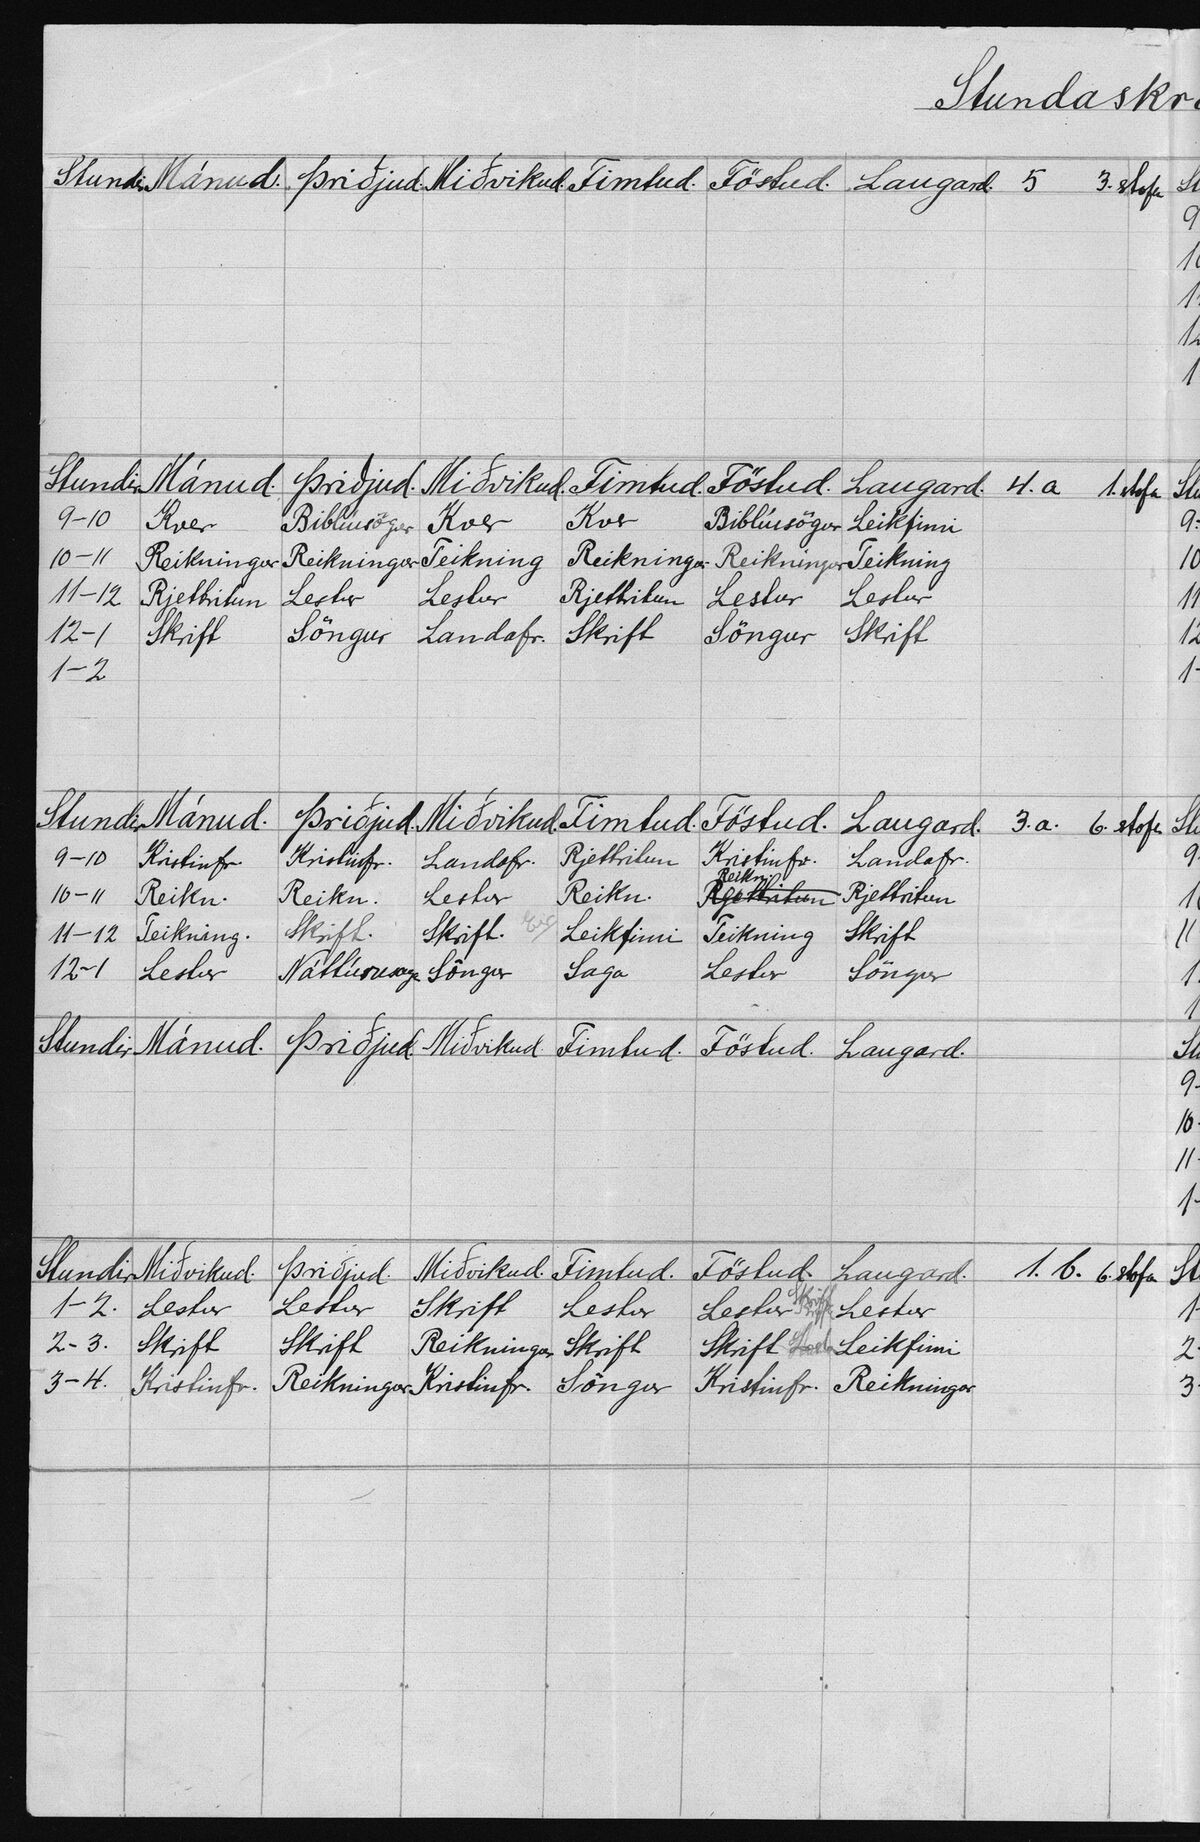 Stundaskr
Stundir Mánud. Þriðjud. Miðvikud. Fimtud. Föstud. Laugard. 5 3. stofa St
9
10
1
12
1
Stundir Mánud. Þriðjud. Miðvikud. Fimtud. Föstud. Laugard. 4. a 1. stofa Stu
9-10 Kver Biblíusögur Kver Kver Biblíusögur Leikfimi 9-
10-11 Reikningar Reikningar Teikning Reikningar Reikningar Teikning 10
11-12 Rjettritun Lestur Lestur Rjettritun Lestur Lestur 11
12-1 Skrift Söngur Landafr. Skrift Söngur Skrift 12
1-2 1-
Stundir Mánud. Þriðjud. Miðvikud. Fimtud. Föstud. Laugard. 3. a. 6. stofa Stu
9-10 Kristinfr. Kristinfr. Landafr. Rjettritun Kristinfr. Landafr. 9-
Reikn.
10-11 Reikn. Reikn. Lestur Reikn. Rjettritun Rjettritun 10
11-12 Teikning. Skrift. Skrift. Leikfimi Teikning Skrift 11
12-1 Lestur Náttúrusaga Söngur Saga Lestur Söngur 1
1
Stundir Mánud. Þriðjud. Miðvikud Fimtud. Föstud. Laugard. Stu
9-
10-
11-
1-
Stundir Miðvikud. Þriðjud. Miðvikud. Fimtud. Föstud. Laugard. 1. b. 6. stofa St
1-2. Lestur Lestur Skrift Lestur Lestur Skrift Lestur 1-
2-3. Skrift Skrift Reikningar Skrift Skrift Leikfimi 2-
3-4. Kristinfr. Reikningar Kristinfr. Söngur Kristinfr. Reikningar 3-